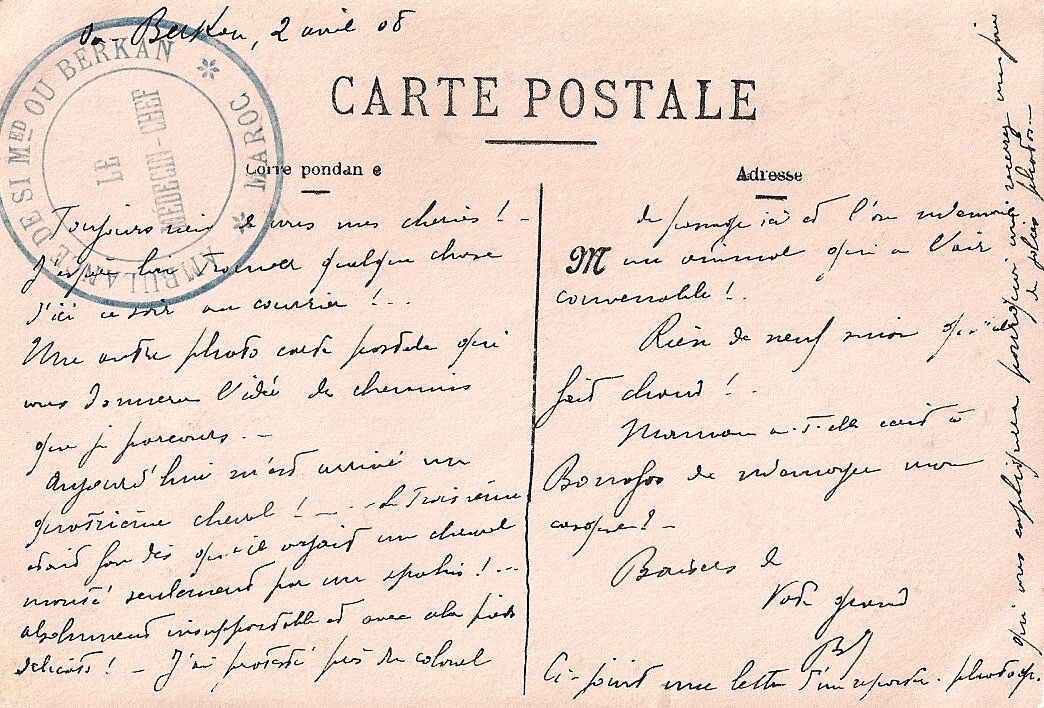 Berkan, 2 avril 08
AMBULANCE DE SI MED OU BERKAN * MAROC *
LE
MÉDECIN-CHEF
CARTE POSTALE
Corre pondan e
Adresse
Toujours rien de vous mes cheries ! -
J'espère bien trouver quelque chose
d'ici ce soir au courrier ! ..
Une autre photo carte postale qui
vous donnera l'idée des chemins
que je parcours. -
Aujourd'hui m'est arrivé un
quatrième cheval ! - ... Le troisième
était
monté seulement par un spahis ! ...
absolument insupportable et avec cela pieds
délicats ! - J'ai protesté près du colonel
de passage ici et l'on m'envoie
M un animal qui a l'air
convenable ! .
Rien de neuf sinon qu'il
fait chaud ! .
Maman a-t-elle écrit à
de m'envoyer mon
casque ? -
Baisers de
Votre grand
Ci-joint une lettre d'un reporter-photogr.
qui vous expliquera pourquoi vous recevrez
de jolies photos. -